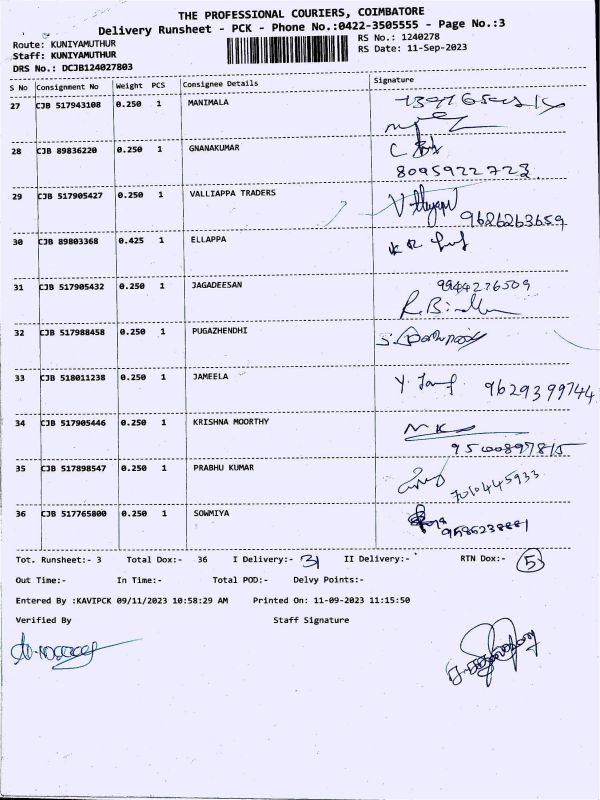 THE PROFESSIONAL COURIERS, COIMBATORE
Delivery Runsheet - PCK - Phone No.:0422-3505555 - Page No.:3
Route: KUNIYAMUTHUR
RS No.: 1240278
Staff: KUNIYAMUTHUR
RS Date: 11-Sep-2023
DRS No.: DCJB124027803
S No Consignment No Weight PCS Consignee Details Signature
27 CJB 517943108 0.250 1 MANIMALA
28 CJB 89836220 0.250 1 GNANAKUMAR
8095922723
29 CJB 517905427 0.250 1 VALLIAPPA TRADERS
9626263659
30 CJB 89803368 0.425 1 ELLAPPA
31 CJB 517905432 0.250 1 JAGADEESAN 9944276509
32 CJB 517988458 0.250 1 PUGAZHENDHI
33 CJB 518011238 0.250 1 JAMEELA 9629399744
34 CJB 517905446 0.250 1 KRISHNA MOORTHY
35 CJB 517898547 0.250 1 PRABHU KUMAR
7010445933
36 CJB 517765800 0.250 1 SOWMIYA
Tot. Runsheet:- 3 Total Dox:- 36 I Delivery:- 31 II Delivery:- RTN Dox:- 5
Out Time:- In Time:- Total POD:- Delvy Points:-
Entered By :KAVIPCK 09/11/2023 10:58:29 AM Printed On: 11-09-2023 11:15:50
Verified By Staff Signature